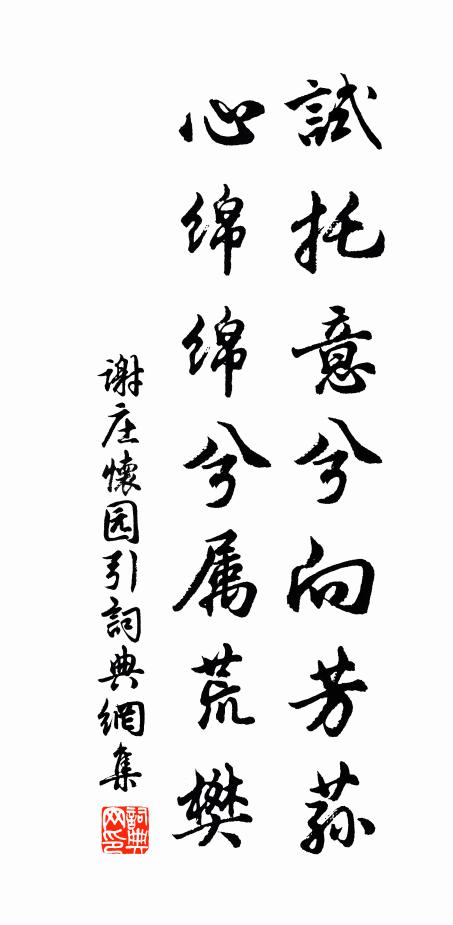 試托意兮向芳荪
心绵绵兮属荒樊
谢庄懷园引詞典網集
詞典网印